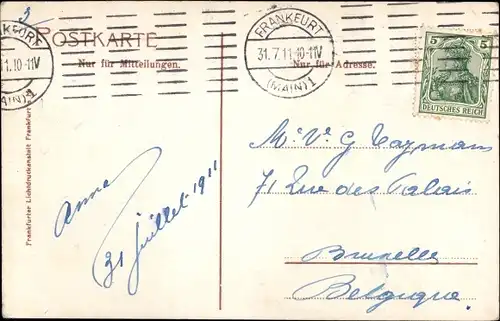 5
POSTKARTE
Nur für Mitteilungen.
Nur für Adresse.
FRANKFURT
31.7.11.10-11V
(MAIN) 1
NKFURT
11.10-11V
(MAIN)
5 5
DEUTSCHES REICH
Frankfurter Lichtdruckanstalt Frankfurt
Anna
31 juillet 1911
71 Rue des Palais
Bruxelles
Belgique.